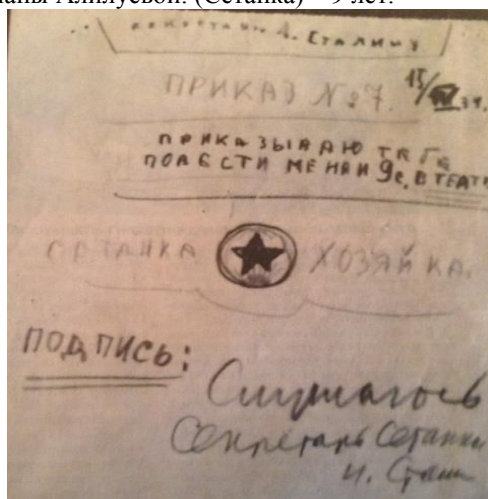 Аллилуевой. (Сетанка) – 9 лет.
И. Сталину
ПРИКАЗ № 7. 15/ 34.
ПРИКАЗЫВАЮ ТЕБЕ
ПОВЕСТИ МЕНЯ В ТЕАТР
СЕТАНКА ХОЗЯЙКА.
ПОДПИСЬ:
Слушаюсь
Секретарь Сетанки
И. Стали